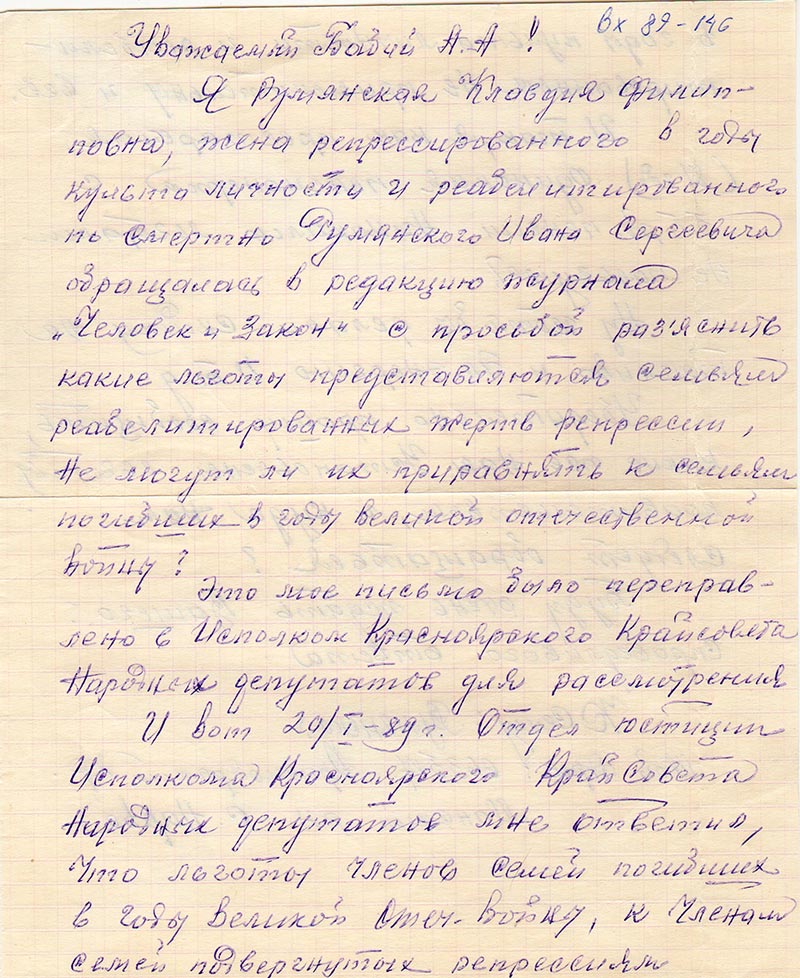 вх 89-146
Уважаемый Бабий А.А!
Я Румянская Клавдия Филип-
повна, жена репрессированного в годы
культа личности и реабелитированного
по смертно Румянского Ивана Сергеевича
обращалась в редакцию журнала
„Человек и Закон" с просьбой раз'яснить
какие льготы представляются семьям
реабелитированных жертв репрессии,
не могут ли их приравнять к семьям
погибших в годы великой отечественной
войны?
Это мое письмо было переправ-
лено в Исполком Красноярского Крайсовета
Народных депутатов для рассмотрения
И вот 20/I-89г. Отдел юстиции
Исполкома Красноярского Край Совета
Народных депутатов мне ответил,
Что льготы членов семей погибших
в годы Великой Отеч. Войны, к Членам
семей подвергнутых репрессиям